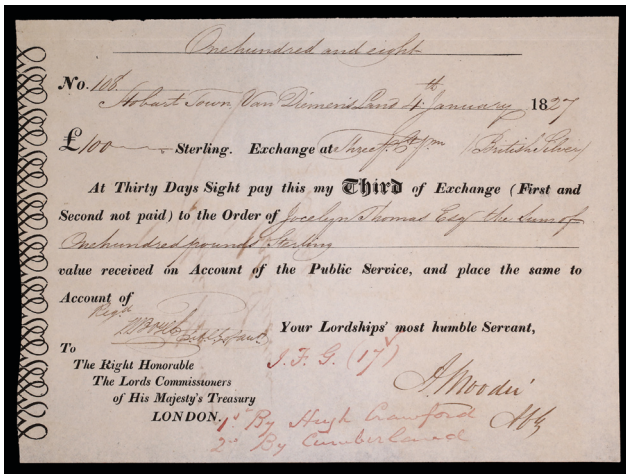 One hundred and eight
No. 108.
Hobart Town, Van Diemen's Land 4th January 1827
£100 Sterling. Exchange at Three p. Ct. pm (British Silver)
At Thirty Days Sight pay this my Third of Exchange (First and
Second not paid) to the Order of Jocelyn Thomas Esq the Sum of
One hundred pounds Sterling
value received on Account of the Public Service, and place the same to
Account of
Regd
Your Lordships' most humble Servant,
To
The Right Honorable
The Lords Commissioners
of His Majesty's Treasury
LONDON.
J. F. G. (17)
A. Moodie
1st By Hugh Crawford
2nd By Cumberland